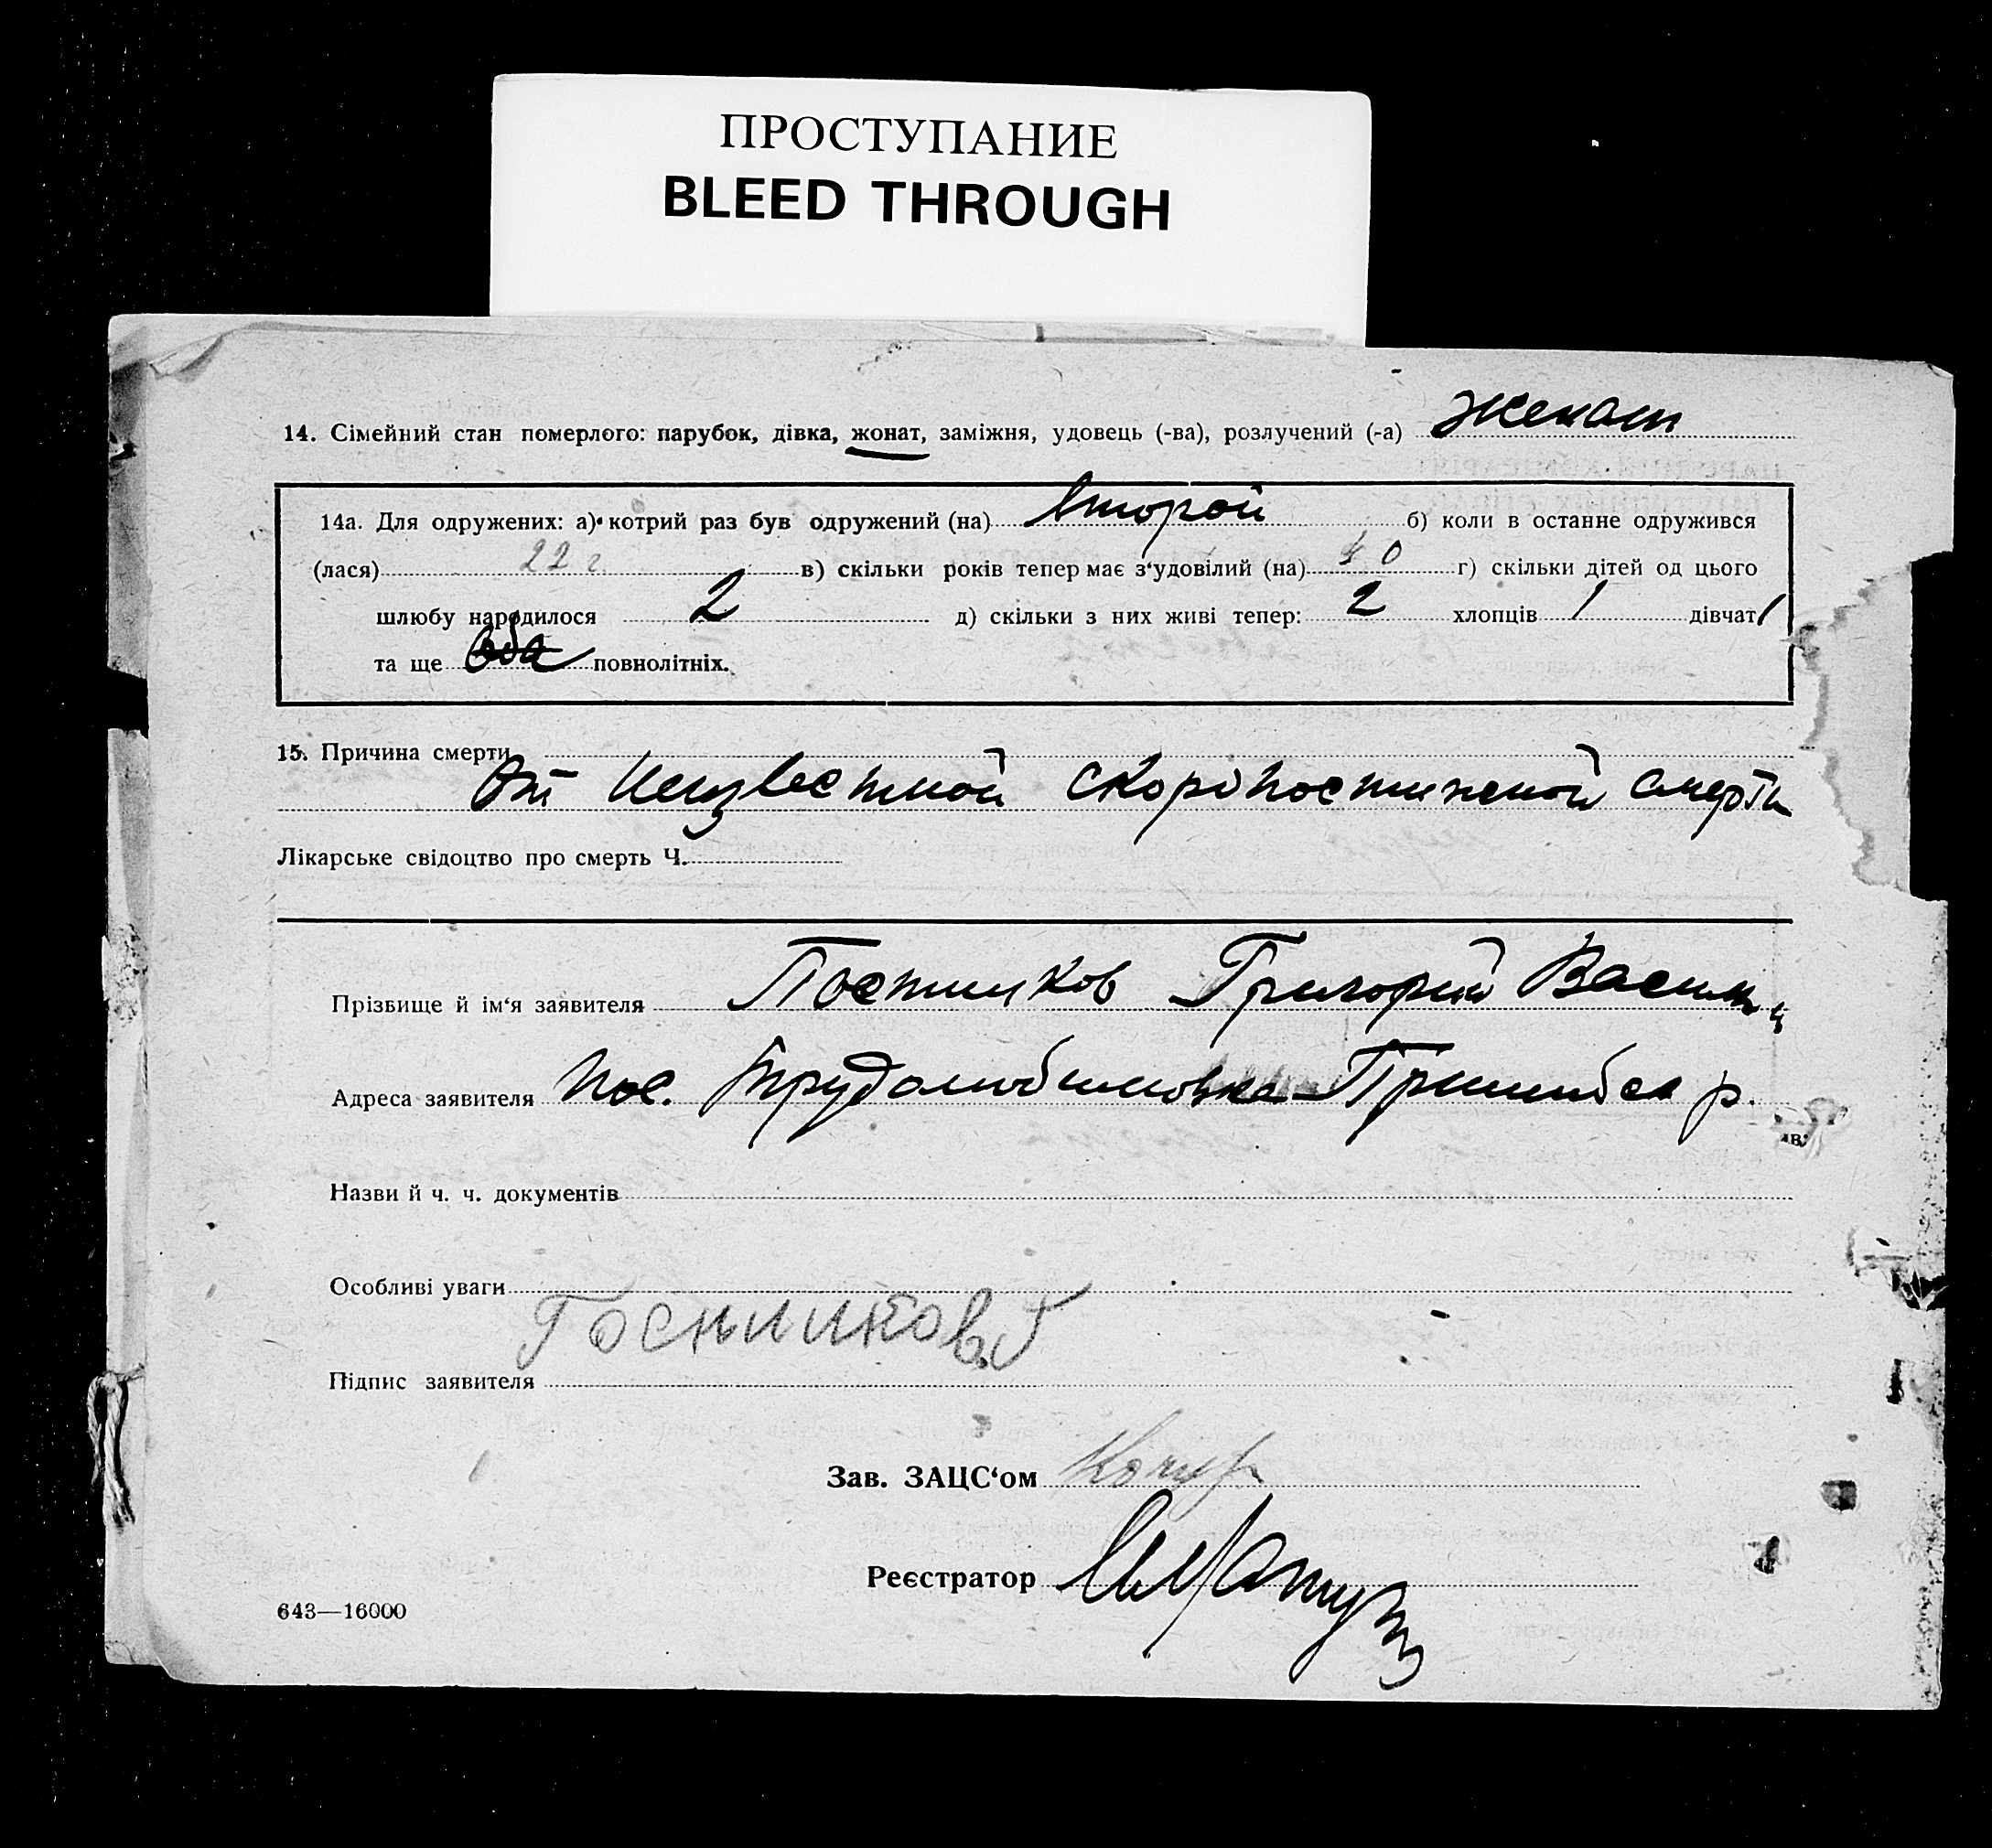 ПРОСТУПАНИЕ
BLEED THROUGH
14. Сімейний стан померлого: парубок, дівка, жонат, заміжня, удовець (-ва), розлучений (-а) женат
14а. Для одружених: а) котрий раз був одружений (на) второй б) коли в останне одружився
(лася) 22 г в) скільки років тепер має з‘удовілий (на) 40 г) скільки дітей од цього
шлюбу народилося 2 д) скільки з них живі тепер: 2 хлопців 1 дівчат 1
та ще оба повнолітніх.
15. Причина смерти
От неизвестной скоропостижной смерти
Лікарське свідоцтво про смерть Ч.
Прізвище й ім‘я заявителя Постников Григорий
Адреса заявителя пос. Трудолюбимовка р.
Назви й ч. ч. документів
Особливі уваги
Підпис заявителя
Зав. ЗАЦС‘ом
Реєстратор
643—16000